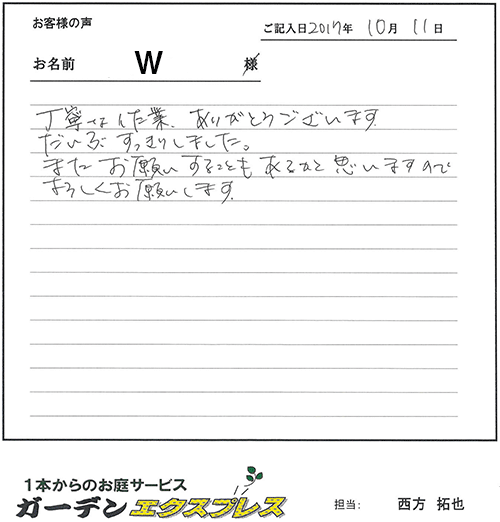 お客様の声
ご記入日2017年 10月 11日
お名前 W 様
丁寧な作業、ありがとうございます
だいぶすっきりしました。
またお願いすることもあるかと思いますので
よろしくお願いします。
1本からのお庭サービス
ガーデンエクスプレス
担当: 西方 拓也